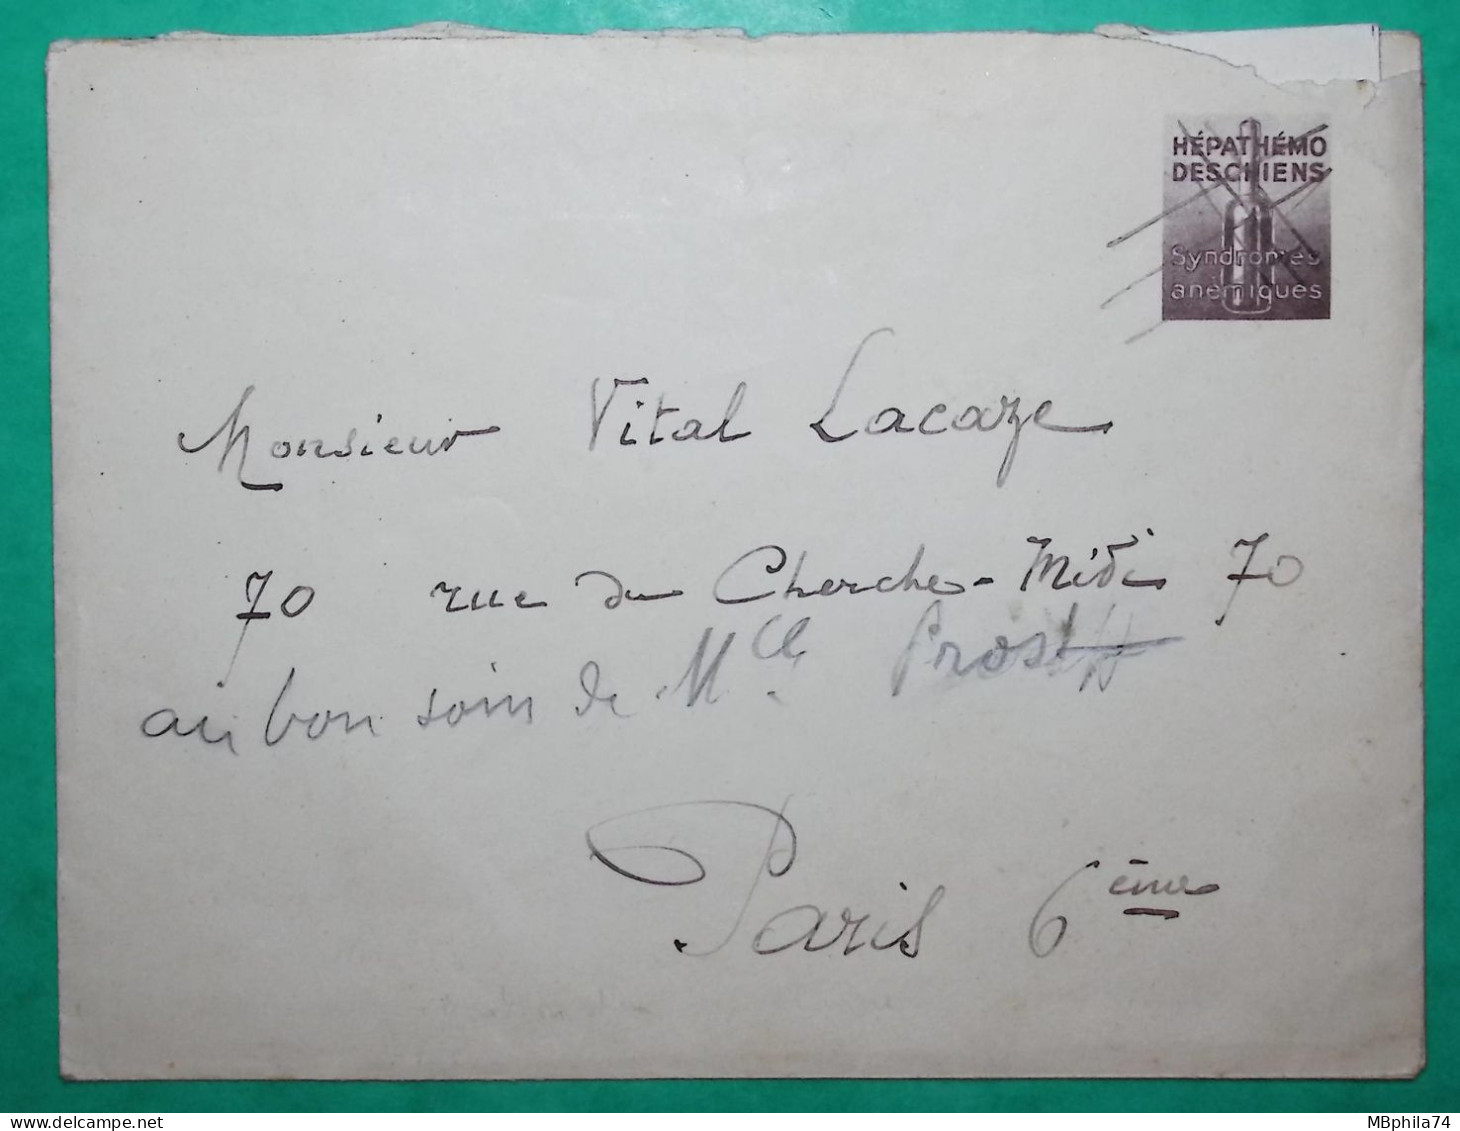 HÉPATHÉMO
DESCHIENS
Syndromes
anémiques
Monsieur Vital Lacaze
70 rue du Cherche-Midi 70
au bon soin de Mlle Prost
Paris 6ème
MBphila74